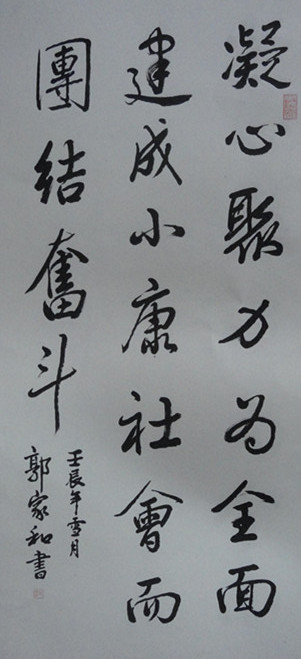 凝心聚力为全面
建成小康社會而
團结奮斗
壬辰年雪月
郭家和書